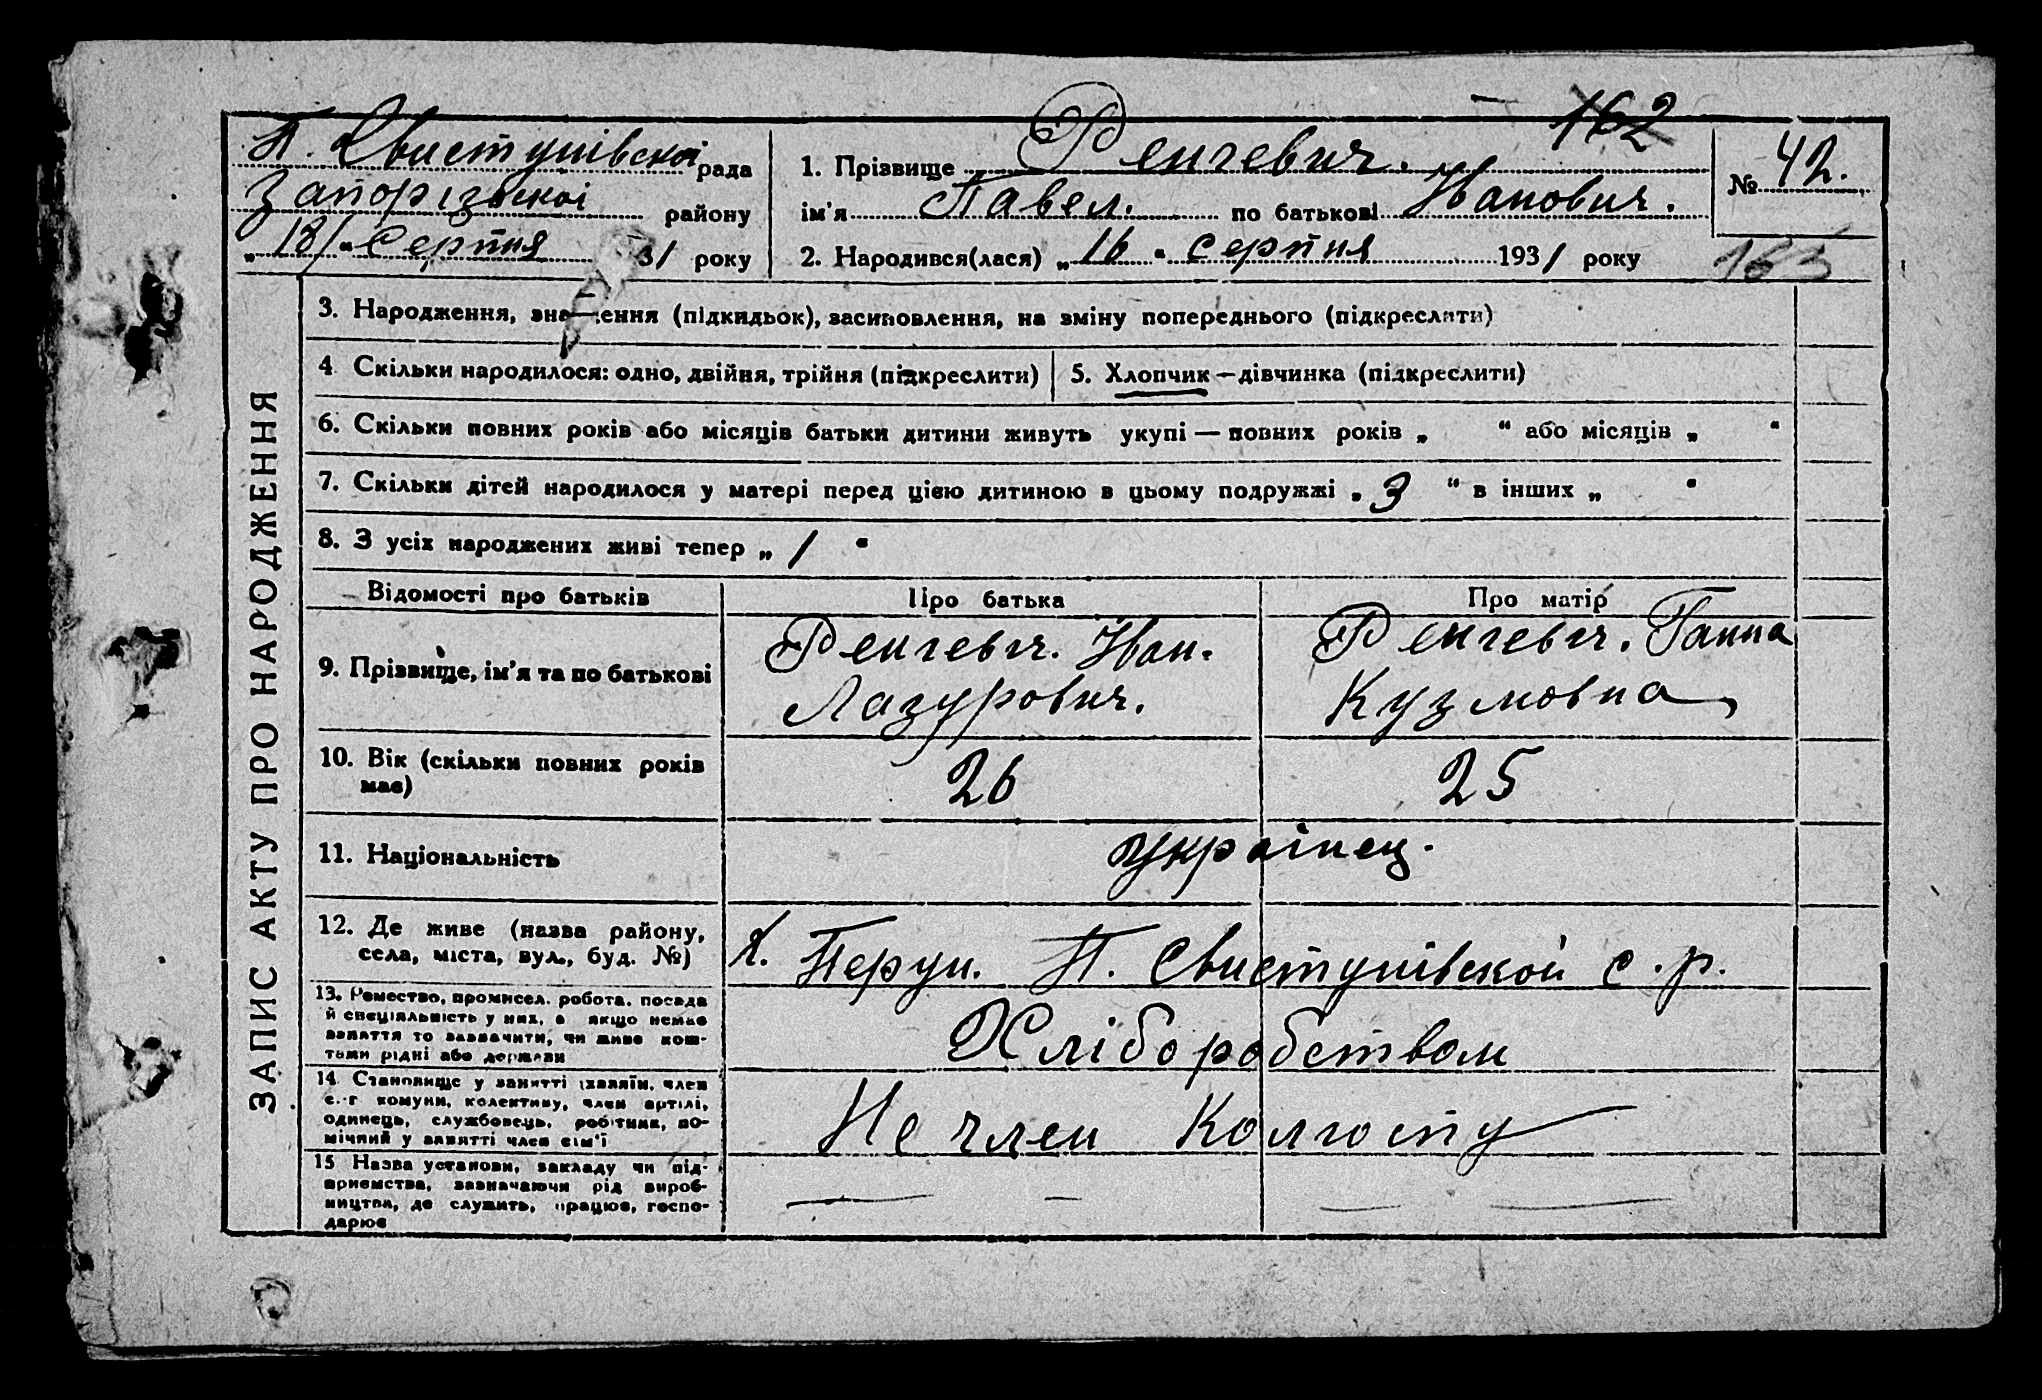 162
П. Свистунівскоі рада
Запорізськоі району
„18“ серпня 31 року
1. Прізвище Ренгевич.
ім'я Павел. по батькові Иванович.
2. Народився(лася) „16“ серпня 1931 року
№ 42.
163
ЗАПИС АКТУ ПРО НАРОДЖЕННЯ
3. Народження, зна ення (підкидьок), засиновлення, на зміну попереднього (підкреслити)
4 Скільки народилося: одно, двійня, трійня (підкреслити)
5. Хлопчик—дівчинка (підкреслити)
6. Скільки повних років або місяців батьки дитини живуть укупі — повних років „ “ або місяців „ “
7. Скільки дітей народилося у матері перед цією дитиною в цьому подружжі „ 3 “ в інших „ “
8. З усіх народжених живі тепер „ 1 “
Відомості про батьків
Про батька
Про матір
9. Прізвище, ім'я та по батькові
Ренгевич. Иван.
Лазурович.
Ренгевич. Ганна
Кузмовна
10. Вік (скільки повних років
має)
26
25
11. Національність
українец.
12. Де живе (назва району,
села, міста, вул., буд. №)
х. Перун. П. Свистунівской с. р.
13. Ремество, промисел, робота, посада
й спеціяльність у них, а якщо немає
заняття то зазначити, чи живе кош-
тами рідні або держави
Хліборобством
14 Становище у занятті (хазяїн, член
с.-г комуни, колективу, член артілі,
одинець, службовець, робітник, по-
мічний у занятті член сім'ї
Не член Колгоспу
15 Назва установи, закладу чи під-
приємства, зазначаючи рід вироб-
ництва, де служить, працює, госпо-
дарює